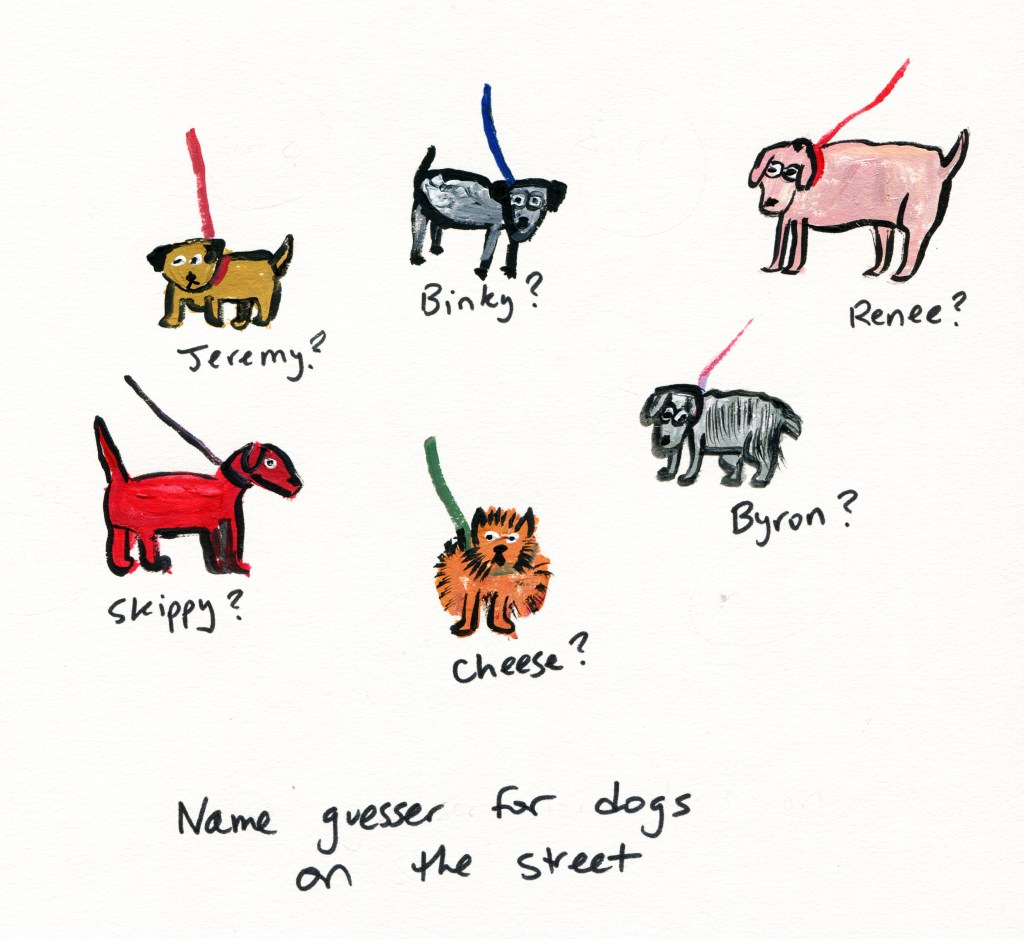 Jeremy?
Binky?
Renee?
Skippy?
Cheese?
Byron?
Name guesser for dogs
on the street